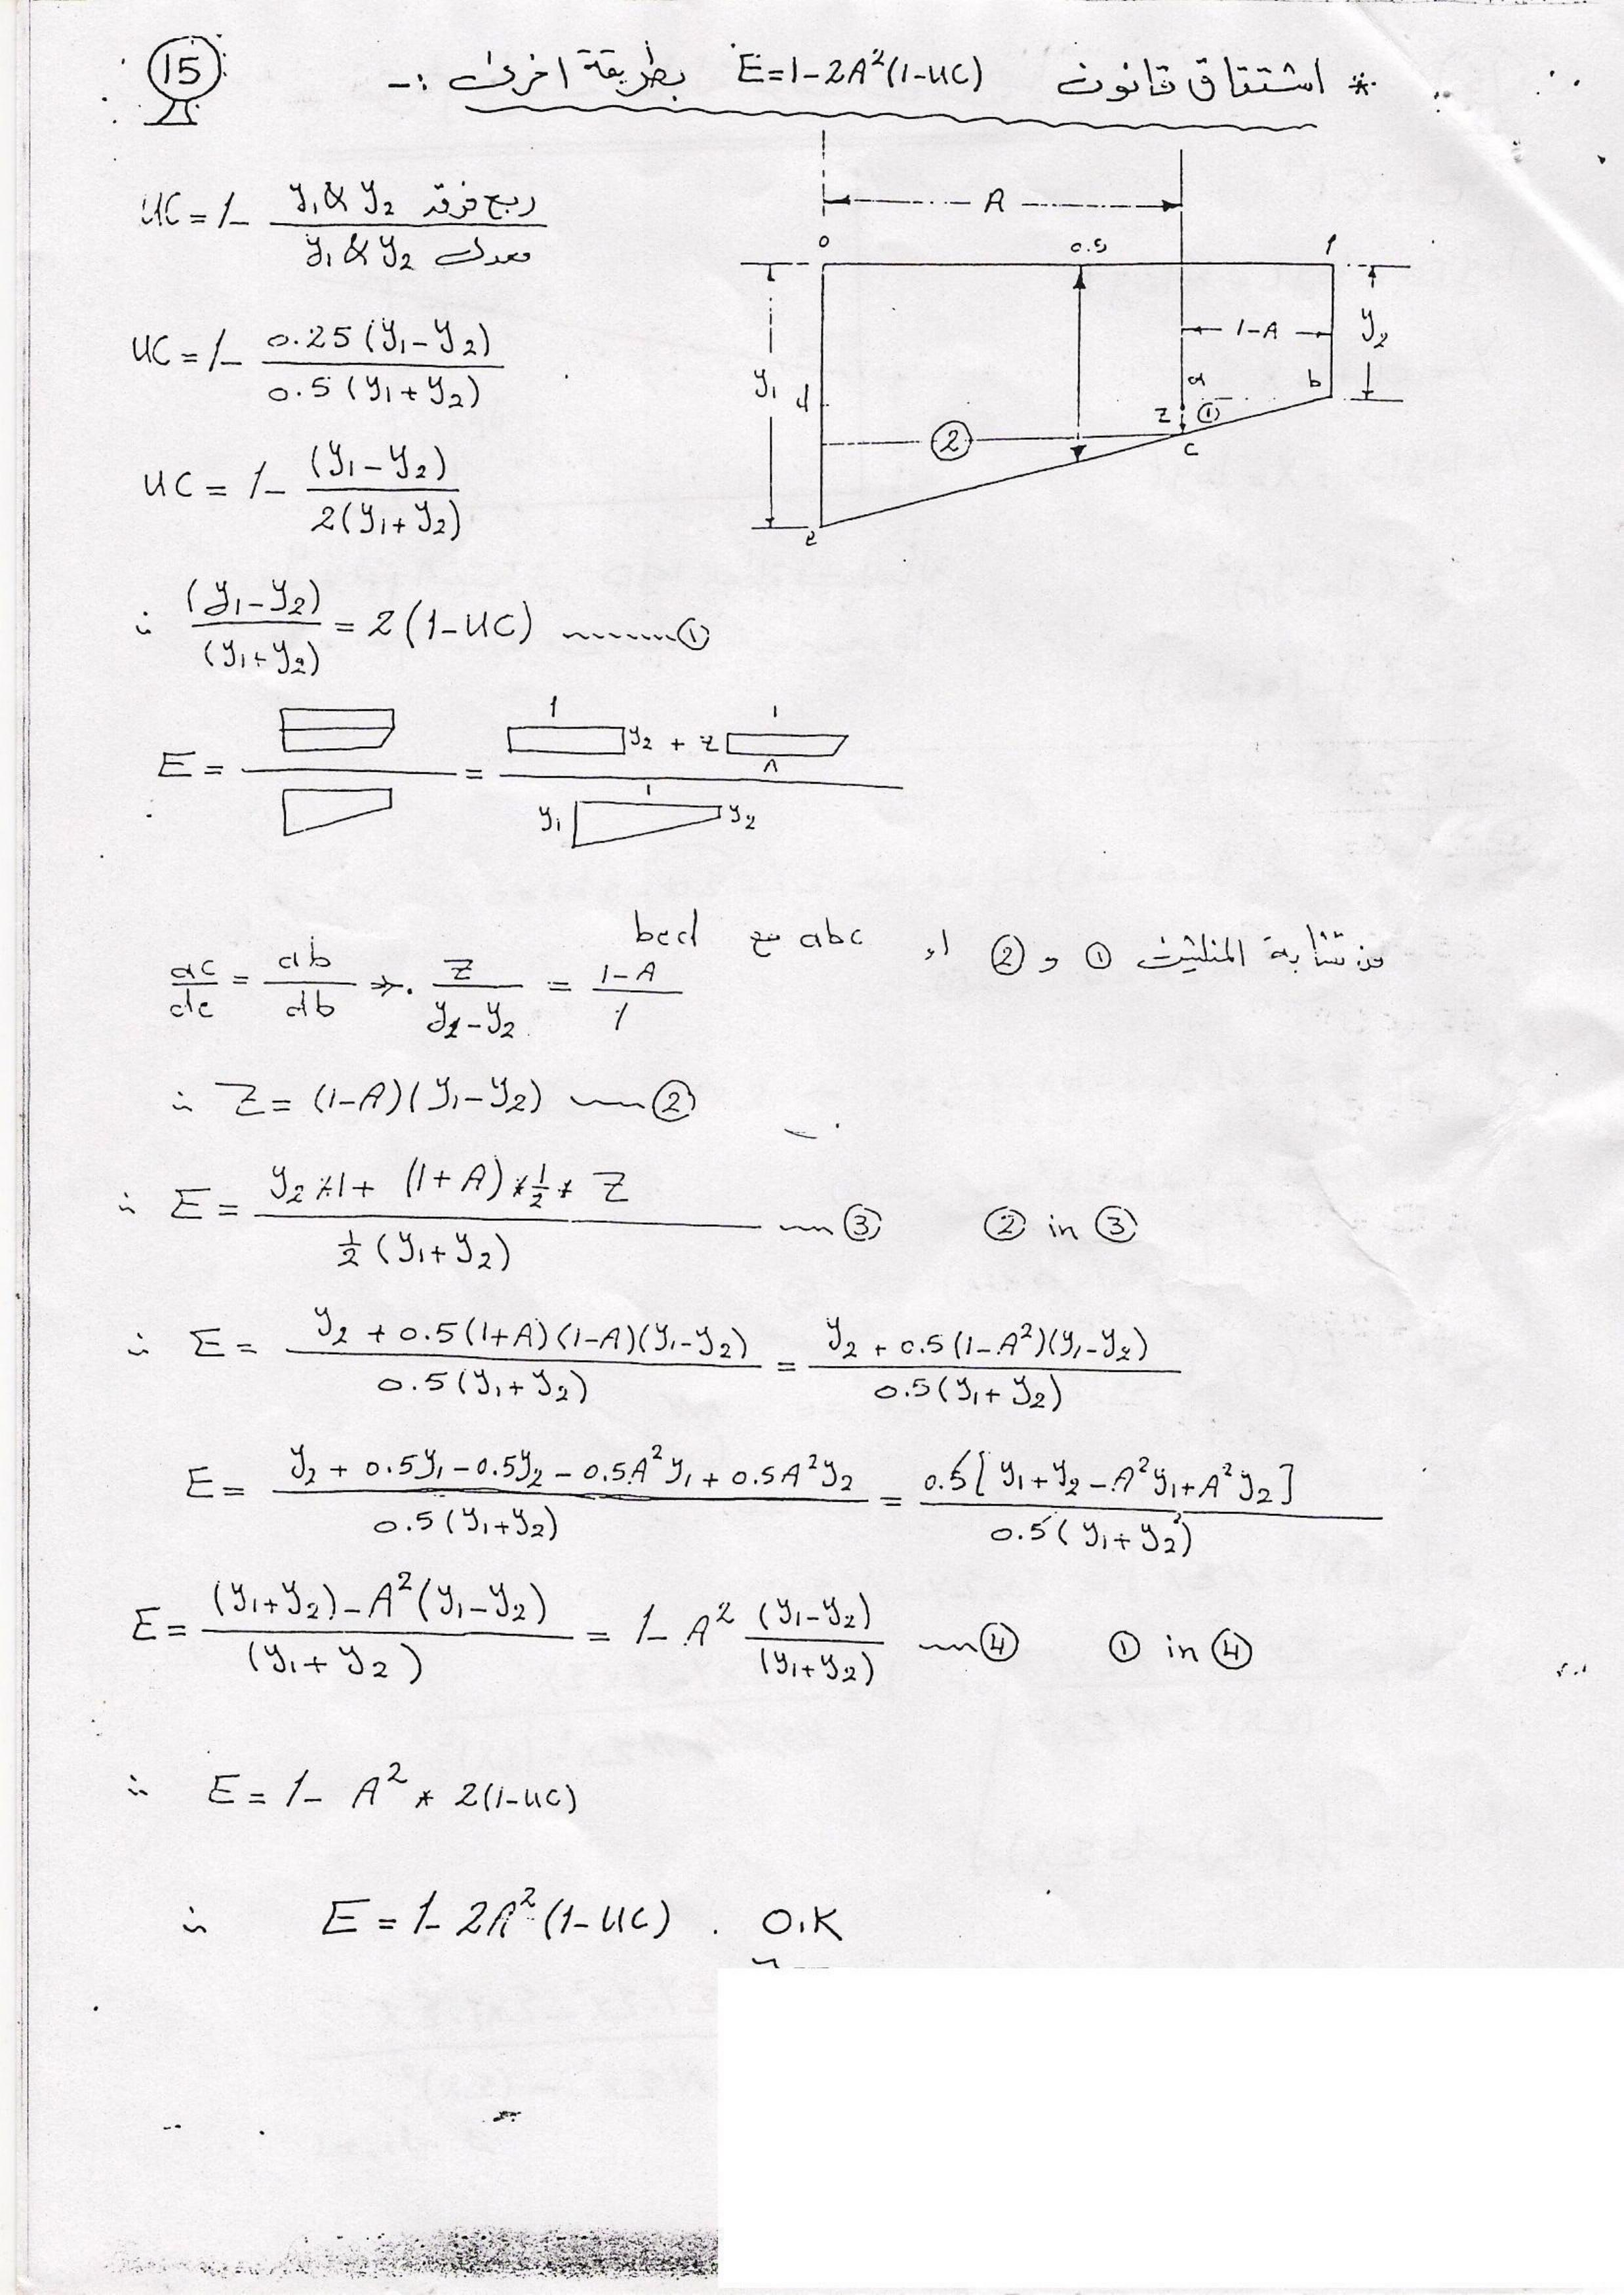 15
* اشتقاق قانون E=1-2A²(1-UC) بطريقة اخرى :-
UC = 1- ربع فرق y₁ & y₂ / معدل y₁ & y₂
A
0 0.5 1
UC = 1- 0.25 (y₁-y₂) / 0.5 (y₁+y₂)
1-A
y₁ y₂
d a b
z ①
② c
e
UC = 1- (y₁-y₂) / 2(y₁+y₂)
∴ (y₁-y₂) / (y₁+y₂) = 2(1-UC) ........①
E = = 1 y₂ + z 1 A / y₁ 1 y₂
من تشابة المثلثين ① و ② اء abc مع bed
ac/de = ab/db ⇒ z/(y₁-y₂) = (1-A)/1
∴ Z = (1-A)(y₁-y₂) ---②
∴ E = y₂*1 + (1+A)*½* Z / ½(y₁+y₂) ---③ ② in ③
∴ E = y₂ + 0.5(1+A)(1-A)(y₁-y₂) / 0.5(y₁+y₂) = y₂ + 0.5(1-A²)(y₁-y₂) / 0.5(y₁+y₂)
E = y₂ + 0.5y₁ - 0.5y₂ - 0.5A²y₁ + 0.5A²y₂ / 0.5(y₁+y₂) = 0.5[y₁+y₂-A²y₁+A²y₂] / 0.5(y₁+y₂)
E = (y₁+y₂)-A²(y₁-y₂) / (y₁+y₂) = 1- A² (y₁-y₂) / (y₁+y₂) ---④ ① in ④
∴ E = 1- A² * 2(1-UC)
∴ E = 1- 2A²(1-UC) . O.K